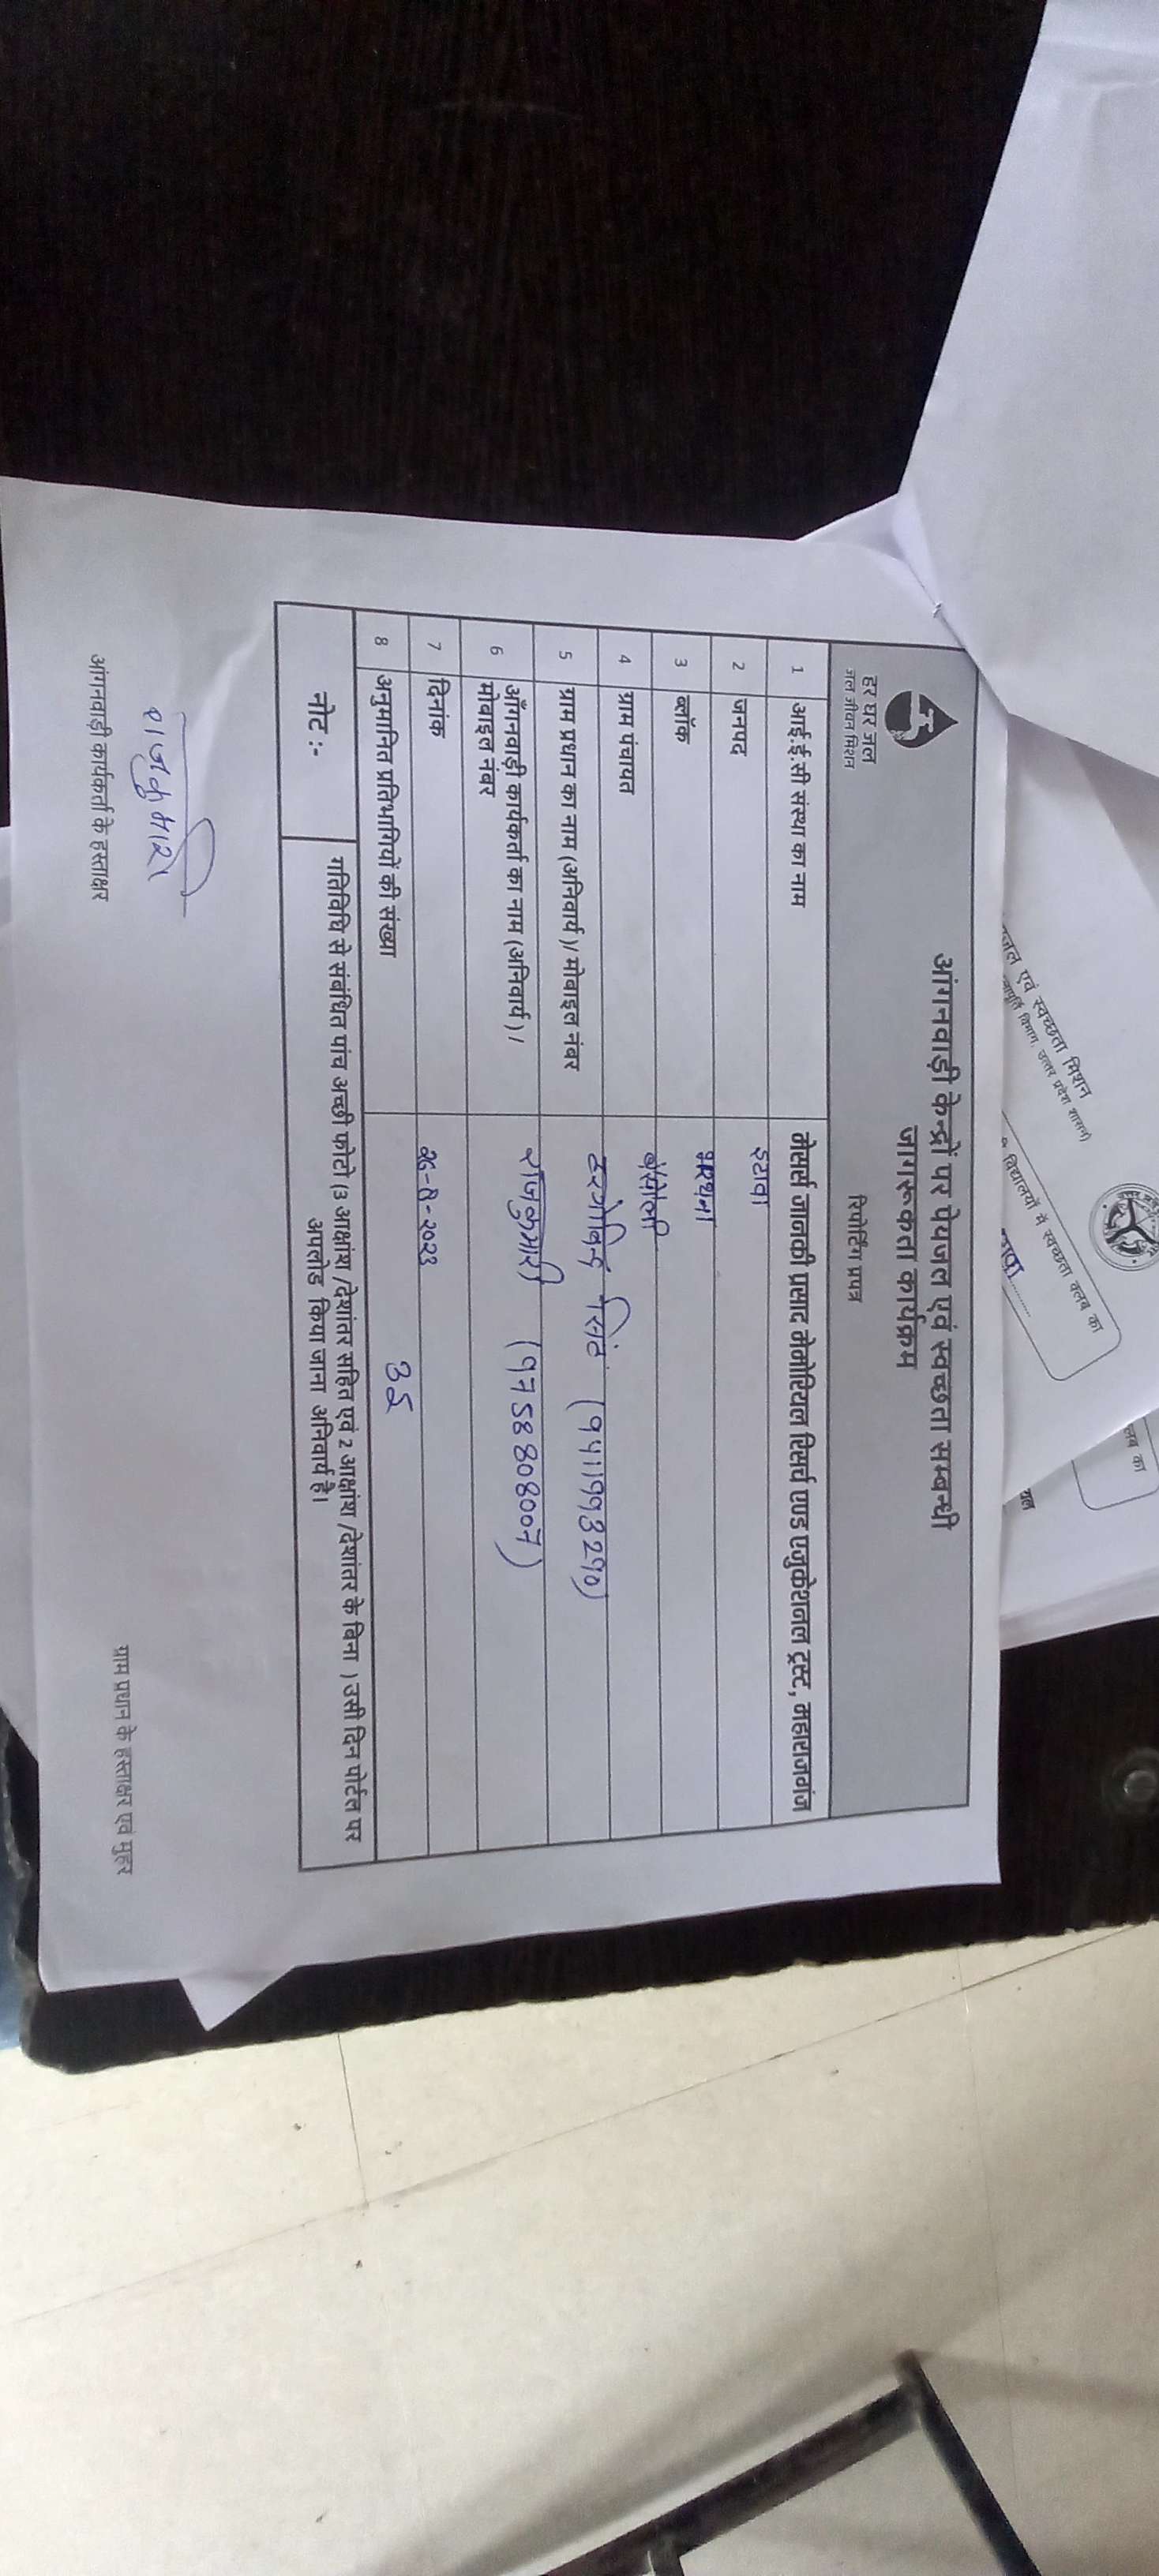 हर घर जल
जल जीवन मिशन
आंगनवाड़ी केन्द्रों पर पेयजल एवं स्वच्छता सम्बन्धी
जागरूकता कार्यक्रम
रिपोर्टिंग प्रपत्र
1 आई.ई.सी संस्था का नाम मेसर्स जानकी प्रसाद मेमोरियल रिसर्च एण्ड एजुकेशनल ट्रस्ट, महाराजगंज
2 जनपद इटावा
3 ब्लॉक भरथना
4 ग्राम पंचायत
5 ग्राम प्रधान का नाम (अनिवार्य)/ मोबाइल नंबर हरगोविन्द सिंह (9411993290)
6 आँगनवाड़ी कार्यकर्ता का नाम (अनिवार्य) / राजकुमारी (9758808007)
मोबाइल नंबर
7 दिनांक 26-8-2023
8 अनुमानित प्रतिभागियों की संख्या 35
नोट :- गतिविधि से संबंधित पांच अच्छी फोटो (3 आक्षांश /देशांतर सहित एवं 2 आक्षांश /देशांतर के बिना ) उसी दिन पोर्टल पर
अपलोड किया जाना अनिवार्य है।
राजकुमारी
आंगनवाड़ी कार्यकर्ता के हस्ताक्षर
ग्राम प्रधान के हस्ताक्षर एवं मुहर
जल एवं स्वच्छता मिशन
विभाग, उत्तर प्रदेश शासन)
विद्यालयों में स्वच्छता क्लब का